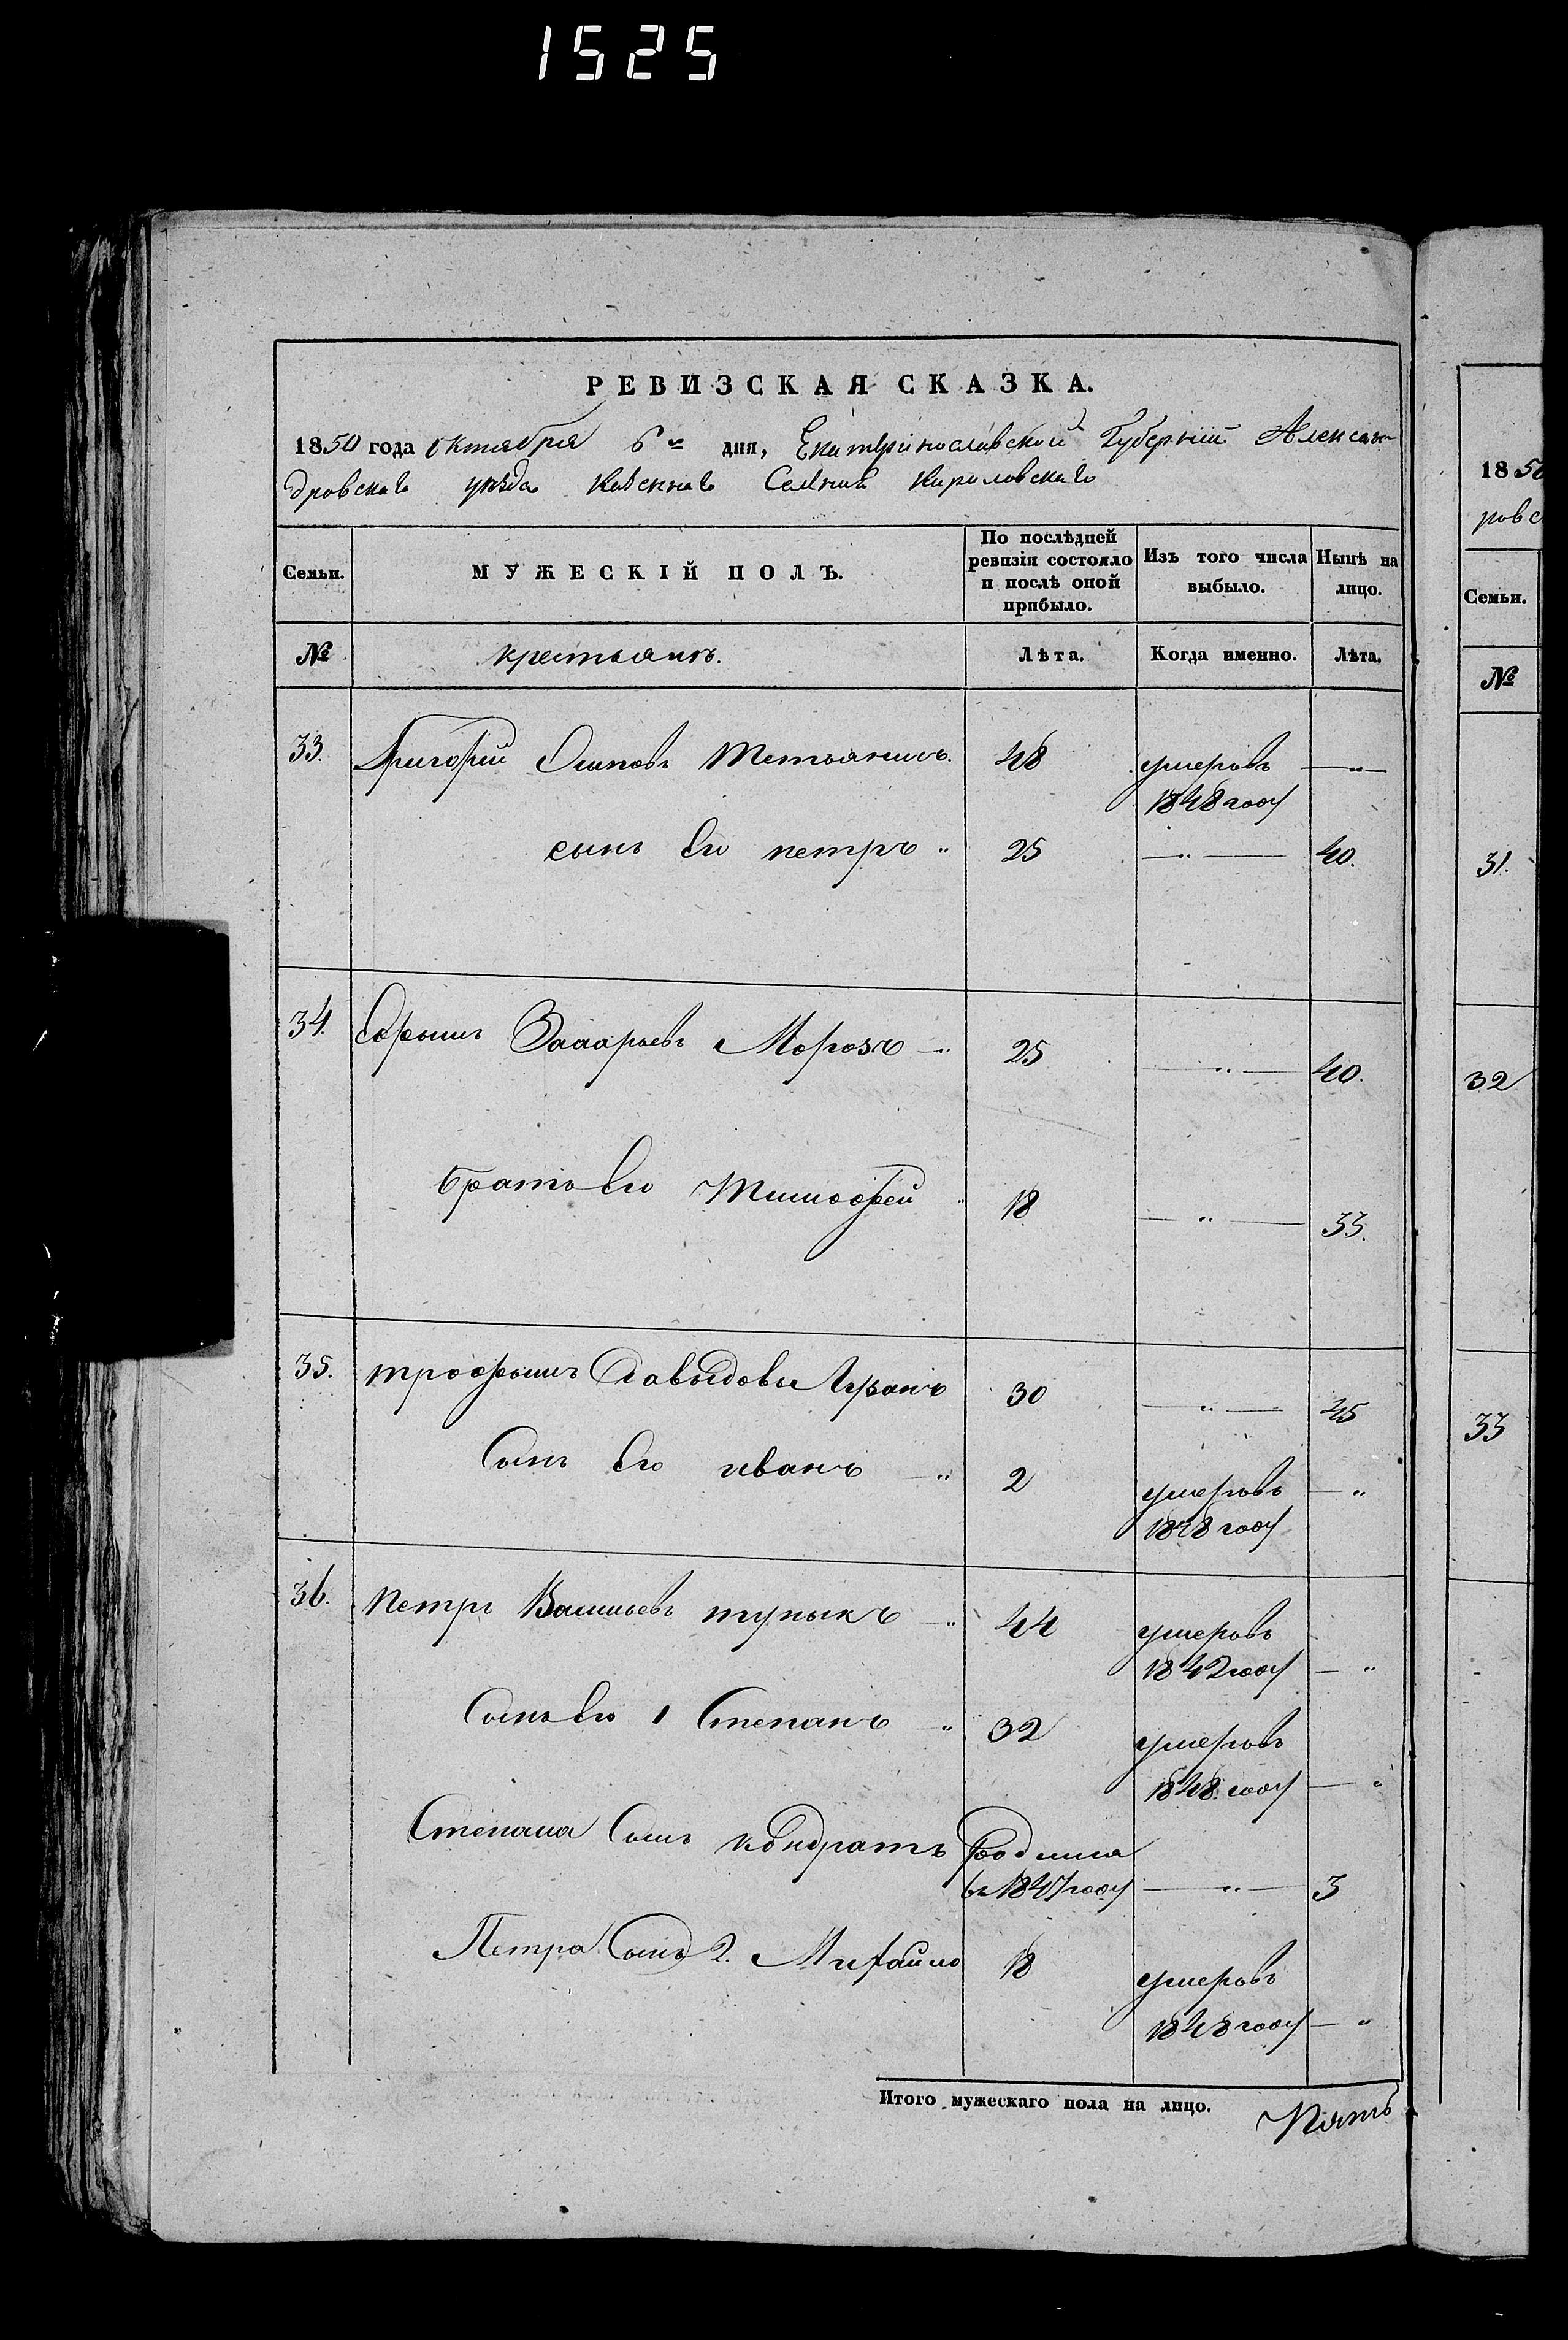 1525
РЕВИЗСКАЯ СКАЗКА.
1850 года октября 6го дня, Екатеринославской Губернии Алексан-
дровскаго уезда казеннаго Селения Кириловскаго
Семьи. МУЖЕСКІЙ ПОЛЪ. По послѣдней ревизіи состояло и послѣ оной прибыло. Изъ того числа выбыло. Нынѣ на лицо.
№ крестьянъ. Лѣта. Когда именно. Лѣта.
33. Григорий Осиповъ Тетянинъ. 48 умеръ въ 1848 году —"—
сынъ его петръ " 25 —"— 40.
34. Ефимъ Захарьевъ Морозъ —" 25 —"— 40.
братъ его Тимофей " 18 —"— 33.
35. трофимъ Давыдовъ 30 —"— 45
Сынъ его иванъ —" 2 умеръ въ 1848 году —"
36. петръ Васильевъ —" 44 умеръ въ 1842 году —"
Сынъ его 1 Степанъ " 32 умеръ въ 1848 году —"
Степана Сынъ кондратъ Родился въ 1847 году —"— 3
Петра Сынъ 2. Михайло 18 умеръ въ 1848 году —"
Итого мужескаго пола на лицо. Пять
1850
ровс
Семьи.
№
31.
32
33